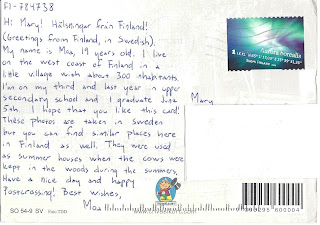 FI-784738
Hi Mary! Hälsningar från Finland!
(Greetings from Finland, in Swedish)
My name is Moa, 19 years old. I live
on the west coast of Finland in a
little village with about 300 inhabitants.
I'm on my third and last year in upper
secondary school and I graduate June
5th. I hope that you like this card!
These photos are taken in Sweden
but you can find similar places here
in Finland as well. They were used
as summer houses when the cows were
kept in the woods during the summers.
Have a nice day and happy
Postcrossing! Best wishes,
Moa
Mary
aurora borealis
SUOMI FINLAND
SO 54-9 SV